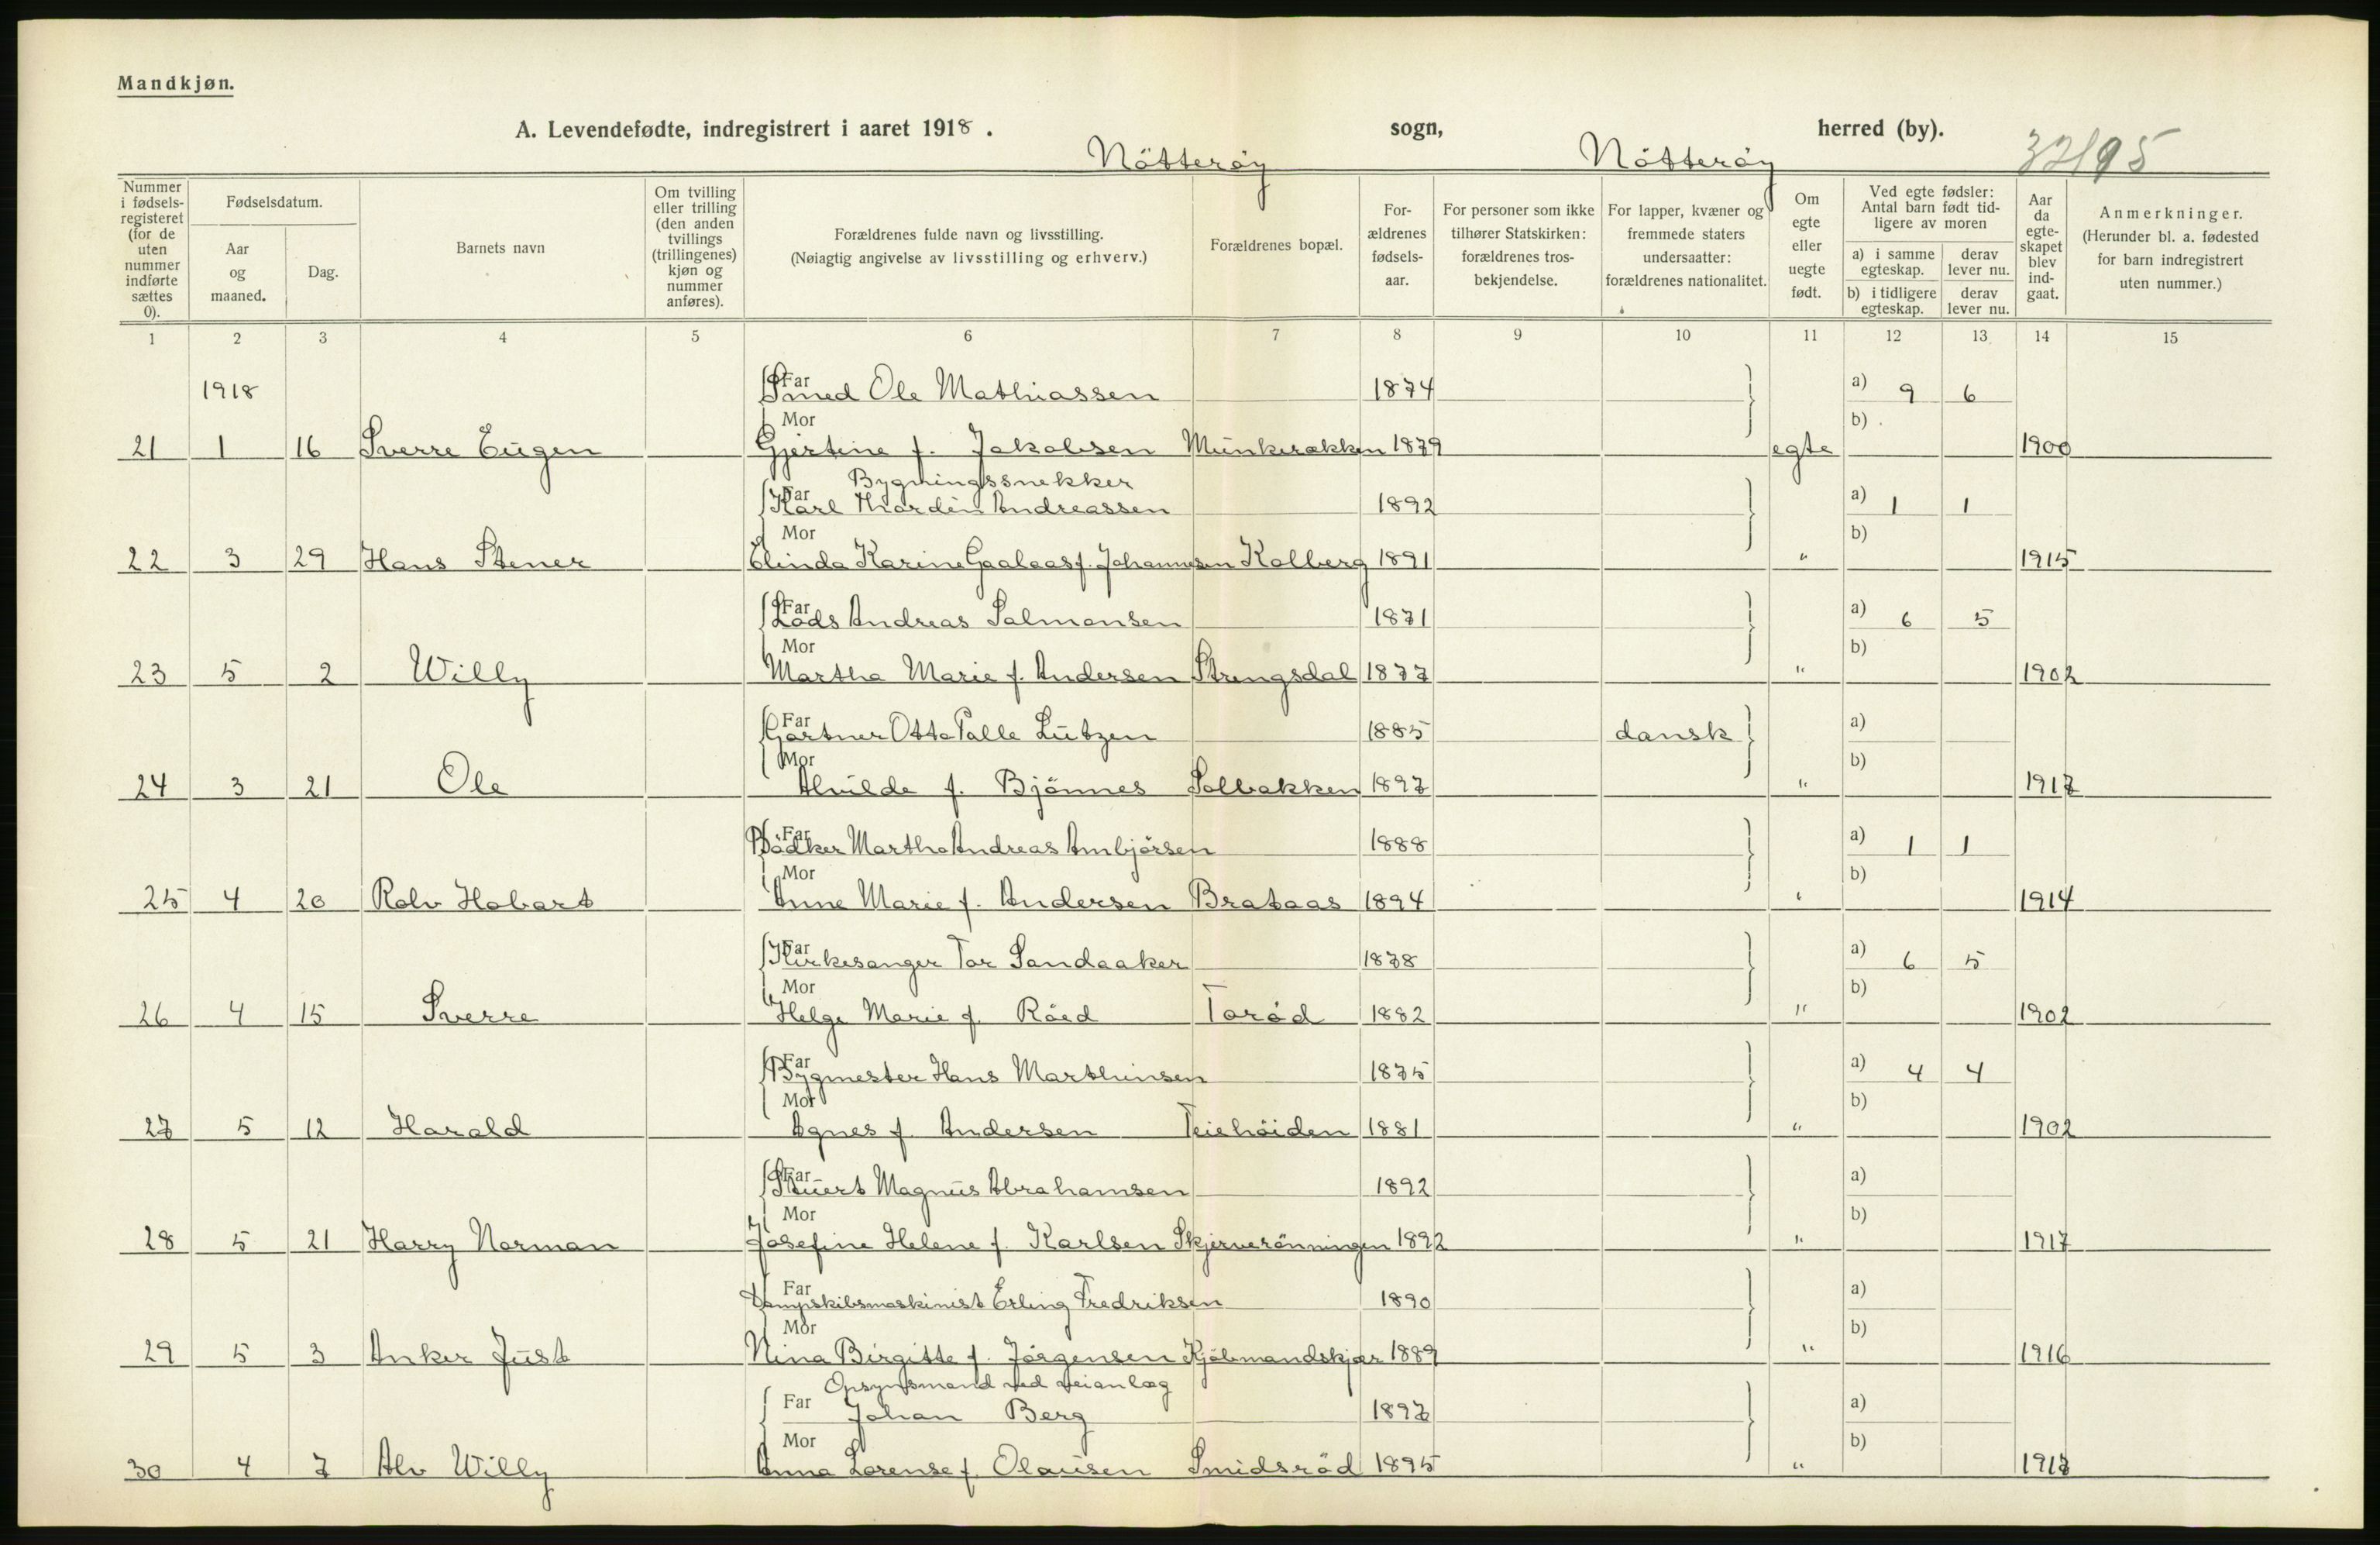 Mandkjøn.
A. Levendefødte, indregistrert i aaret 1918. Nötteröy sogn, Nötteröy herred (by). 32/95
Nummer i fødselsregisteret (for de uten nummer indførte sættes 0).
Fødselsdatum.
Aar og maaned.
Dag.
Barnets navn
Om tvilling eller trilling (den anden tvillings (trillingenes) kjøn og nummer anføres).
Forældrenes fulde navn og livsstilling.
(Nøiagtig angivelse av livsstilling og erhverv.)
Forældrenes bopæl.
Forældrenes fødselsaar.
For personer som ikke tilhører Statskirken: forældrenes trosbekjendelse.
For lapper, kvæner og fremmede staters undersaatter: forældrenes nationalitet.
Om egte eller uegte født.
Ved egte fødsler: Antal barn født tidligere av moren
a) i samme egteskap. derav lever nu.
b) i tidligere egteskap. derav lever nu.
Aar da egteskapet blev indgaat.
Anmerkninger.
(Herunder bl. a. fødested for barn indregistrert uten nummer.)
1 2 3 4 5 6 7 8 9 10 11 12 13 14 15
1918 Far Smed Ole Mathiassen 1874 a) 9 6
Mor b)
21 1 16 Sverre Eugen Gjertine f. Jakobsen Munkerakken 1879 egte 1900
Bygningssnekker
Far Karl Thordin Andreassen 1892 a) 1 1
Mor b)
22 3 29 Hans Stener Elinda Karine Gaalaas f. Johannesen Kolberg 1891 " 1915
Far Lods Andreas Salmonsen 1871 a) 6 5
Mor b)
23 5 2 Willy Martha Marie f. Andersen Strengsdal 1877 " 1902
Far Gartner Otto Palle Lützen 1885 dansk a)
Mor b)
24 3 21 Ole Alvilde f. Bjönnes Solbakken 1897 " 1917
Far Bödker Martho Andreas Ambjörsen 1888 a) 1 1
Mor b)
25 4 20 Rolv Hobart Anne Marie f. Andersen Brataas 1894 " 1914
Far Kirkesanger Tor Sandaaker 1878 a) 6 5
Mor b)
26 4 15 Sverre Helga Marie f. Röed Toröd 1882 " 1902
Far Bygmester Hans Marthinsen 1875 a) 4 4
Mor b)
27 5 12 Harald Agnes f. Andersen Teiehöiden 1881 " 1902
Far Stuert Magnus Abrahamsen 1892 a)
Mor b)
28 5 21 Harry Norman Josefine Helene f. Karlsen Skjerverönningen 1892 " 1917
Far Dampskibsmaskinist Erling Fredriksen 1890 a)
Mor b)
29 5 3 Anker Just Nina Birgitte f. Jörgensen Kjöbmandskjær 1889 " 1916
Opsynsmand ved veianlæg
Far Johan Berg 1897 a)
Mor b)
30 4 7 Alv Willy Anna Lorense f. Olausen Smidsröd 1895 " 1917